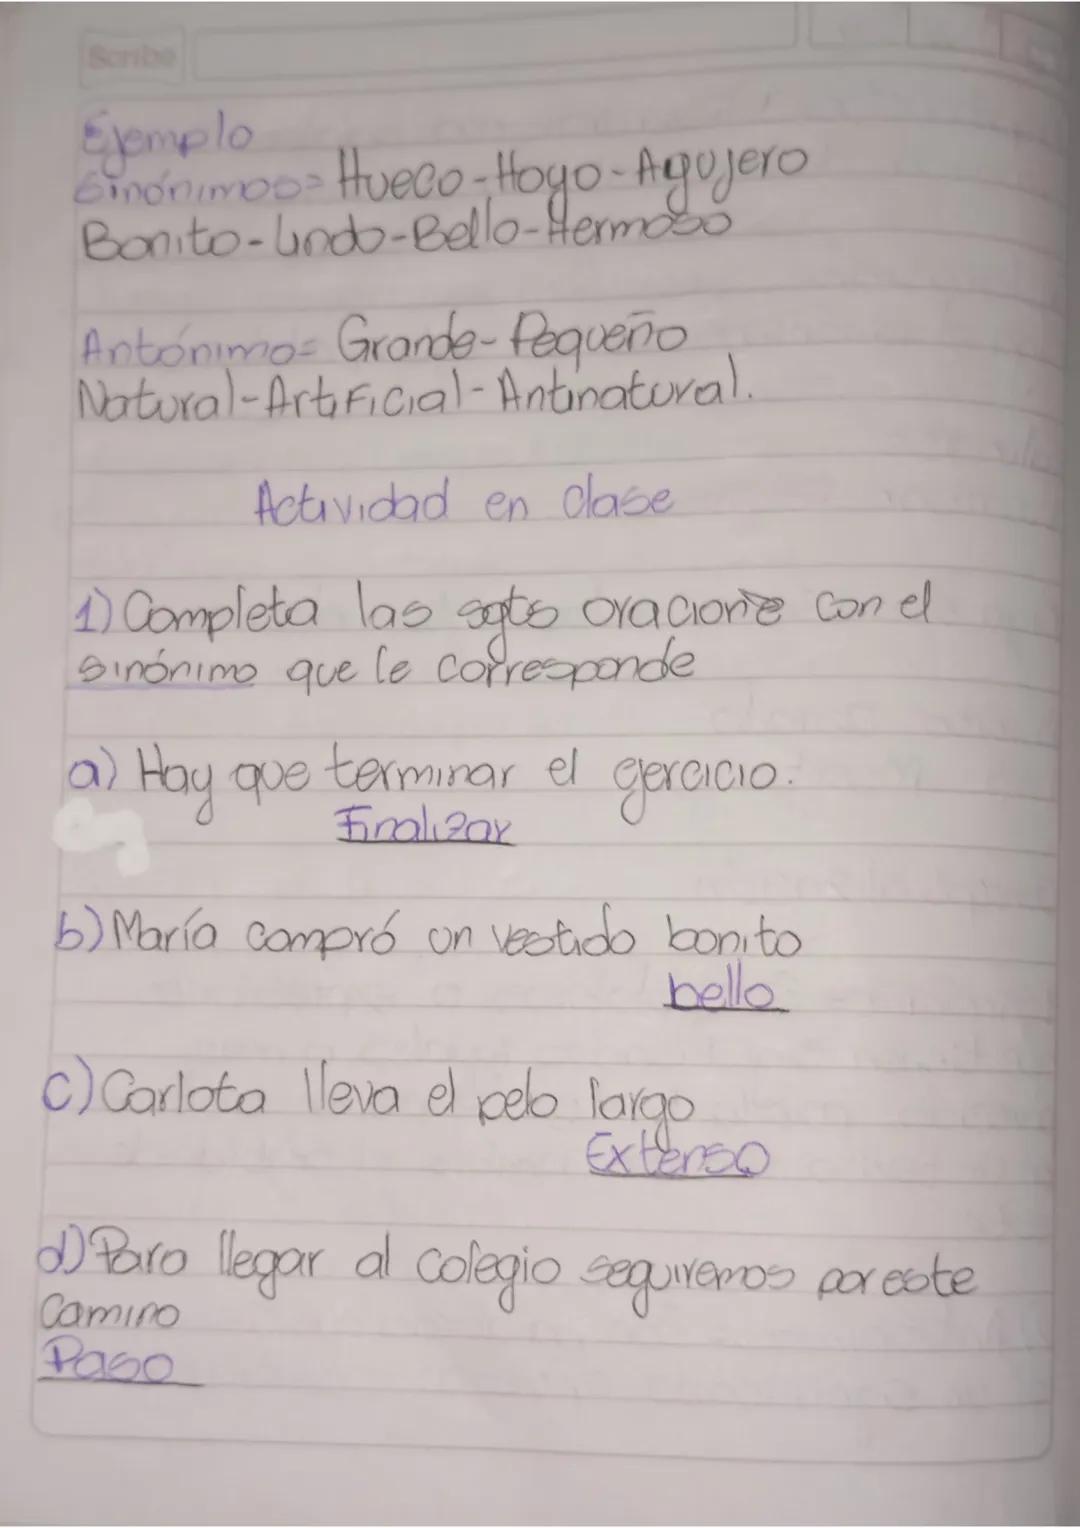 Scribe
Ejemplo
Sinónimos= Hueco-Hoyo-Agujero
Bonito-Lindo-Bello-Hermoso
Antónimo= Grande-Pequeño
Natural-Artificial-Antinatural.
Actividad en clase
1) Completa las sgts oracione con el
sinónimo que le corresponde
a) Hay que terminar el ejercicio.
Finalizar
b) María compró un vestido bonito
bello
c) Carlota lleva el pelo largo
Extenso
d) Para llegar al colegio seguiremos por este
camino
Paso